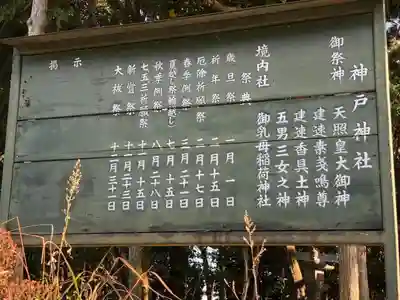 神戸神社
御祭神
天照皇大御神
建速素戔鳴尊
建速香具土神
五男三女之神
境内社
御乳母稲荷神社
祭典
歳旦祭 一月一日
祈年祭 二月十五日
厄除祈願祭 二月十七日
春季例祭 三月二十一日
夏越し祭(輪越し) 七月十五日
秋季例祭 八月二十八日
七五三祈願祭 十月十五日
新嘗祭 十一月二十三日
大祓祭 十二月三十一日
掲示